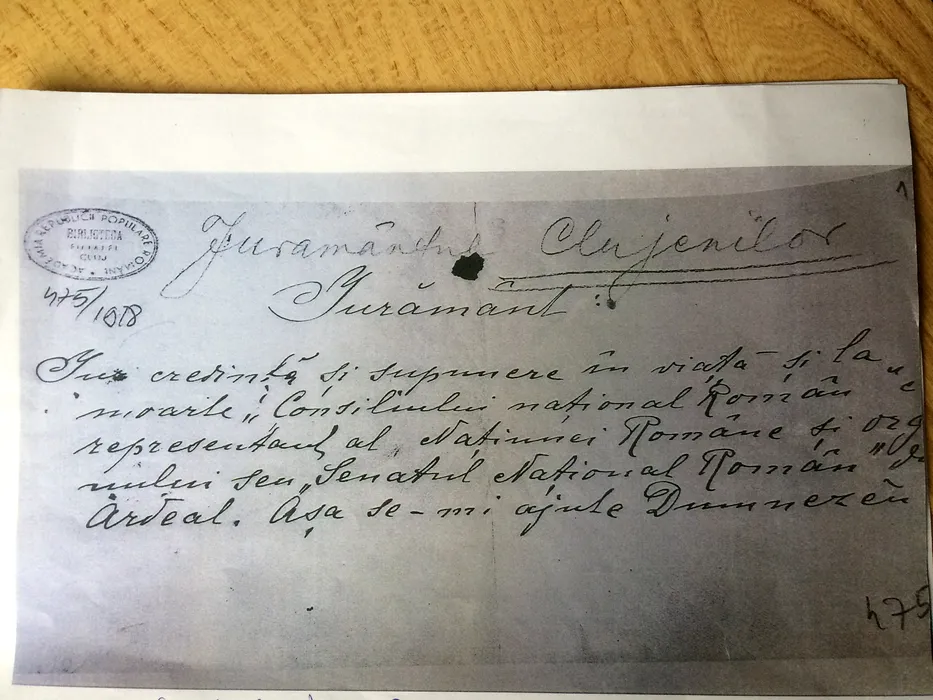 ACADEMIA REPUBLICII POPULARE ROMÂNE
BIBLIOTECA
FILIALEI
CLUJ
475/1918
1
Juramântul Clujenilor
Jurământ :
Jur credință și supunere în viață și la
moarte „Consiliului național Român
representant al Națiunei Române și org
nului seu „Senatul Național Român"
Ardeal. Așa se-mi ajute Dumnezeu
475